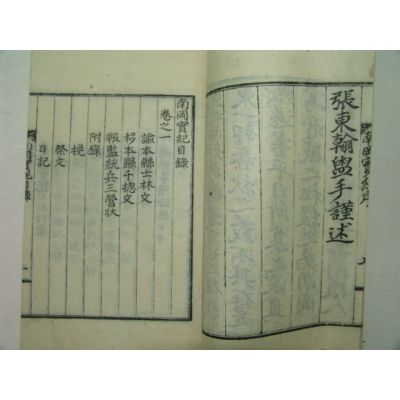 張東翰盥手謹述
南岡實紀序
南岡實紀目錄
卷之一
諭本縣士林文
移本縣千摠文
報監統兵三營狀
附錄
挽
祭文
日記